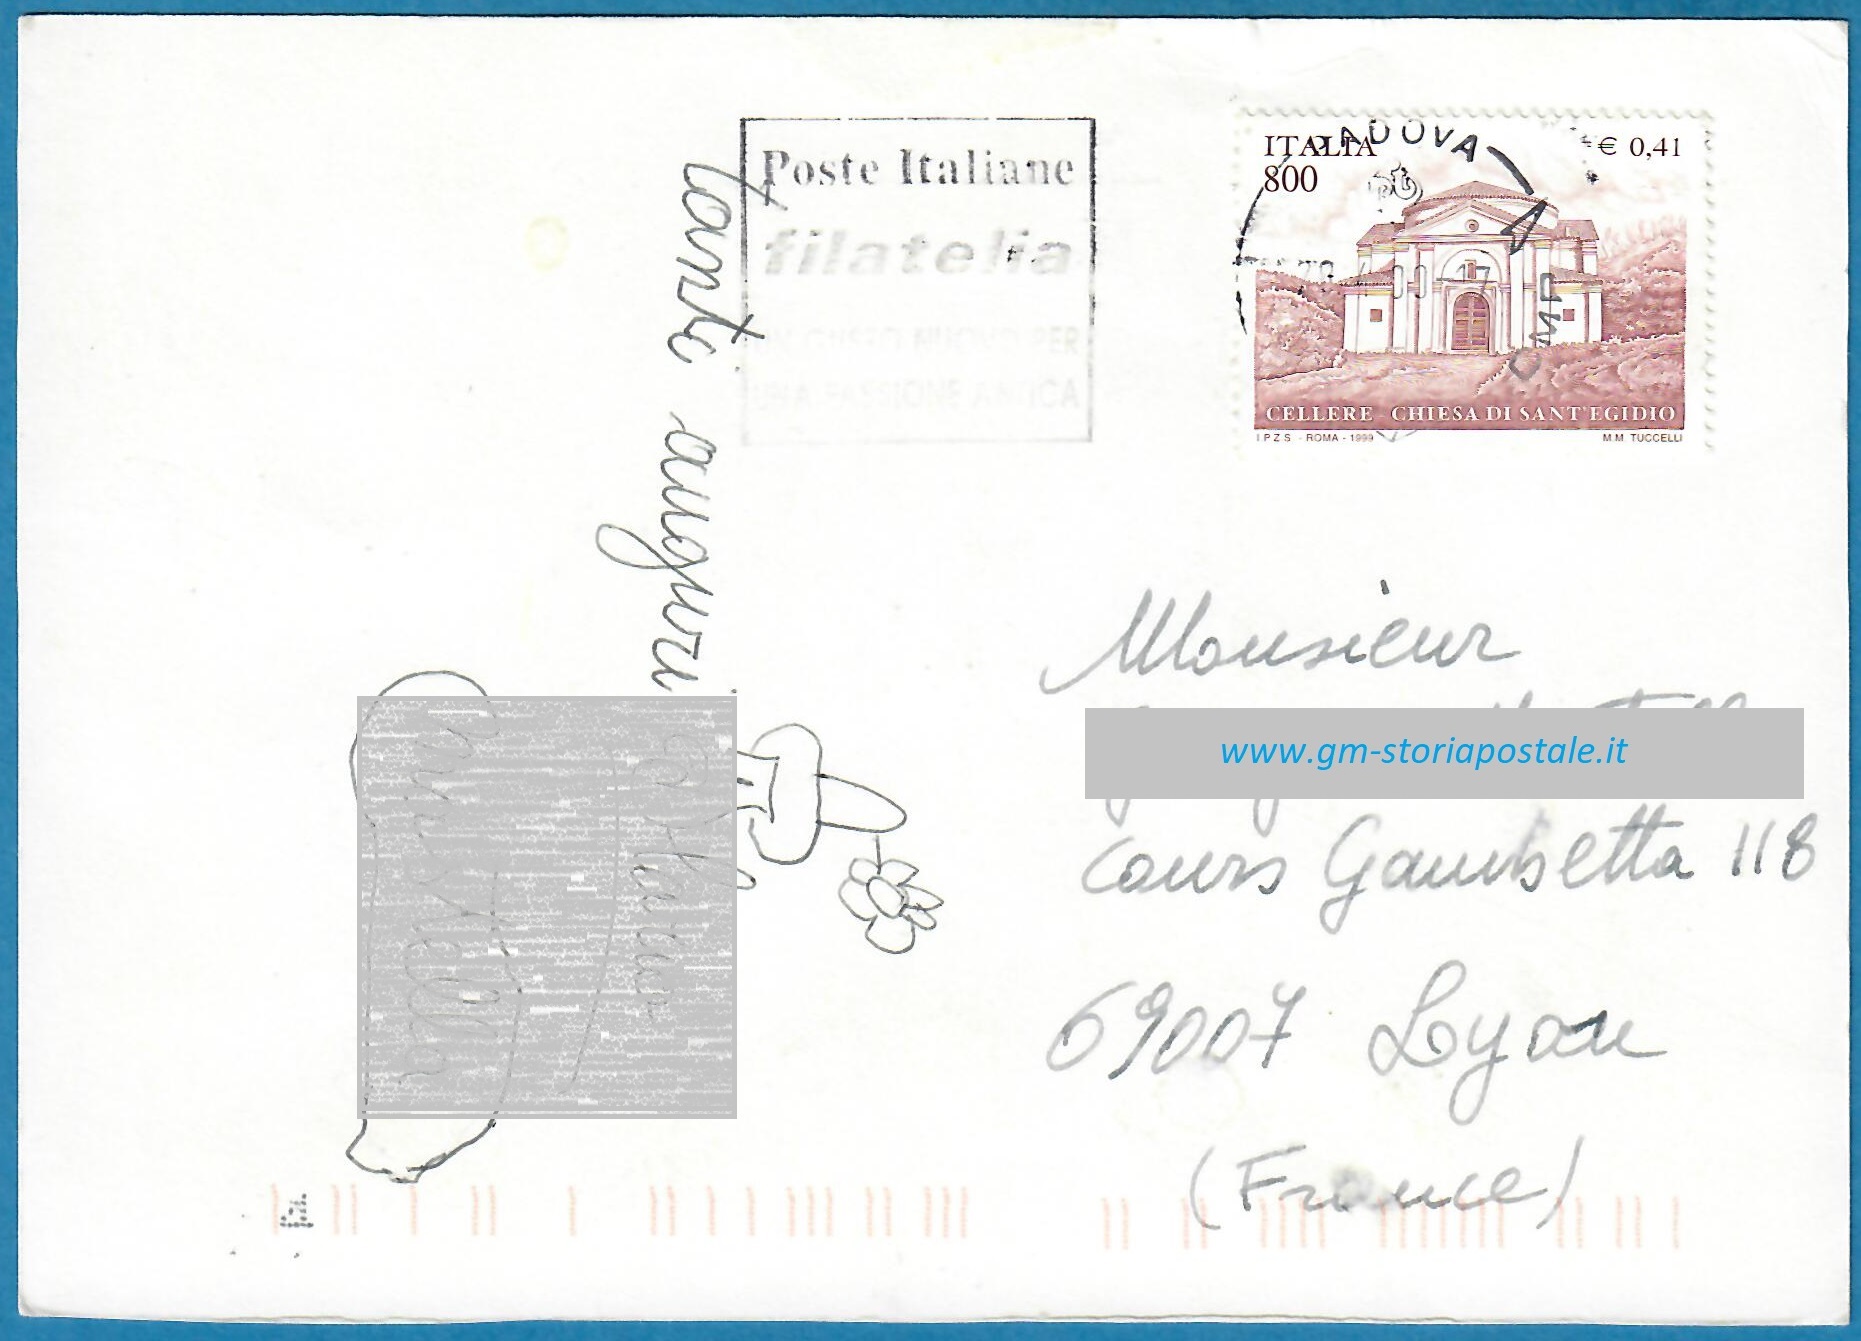 Poste Italiane
filatelia
UN GUSTO NUOVO PER
UNA PASSIONE ANTICA
PADOVA
CMP
ITALIA
800
€ 0,41
CELLERE CHIESA DI SANT'EGIDIO
I.P.Z.S. - ROMA - 1999
M.M. TUCCELLI
tanti auguri
Monsieur
www.gm-storiapostale.it
Cours Gambetta 118
69007 Lyon
(France)